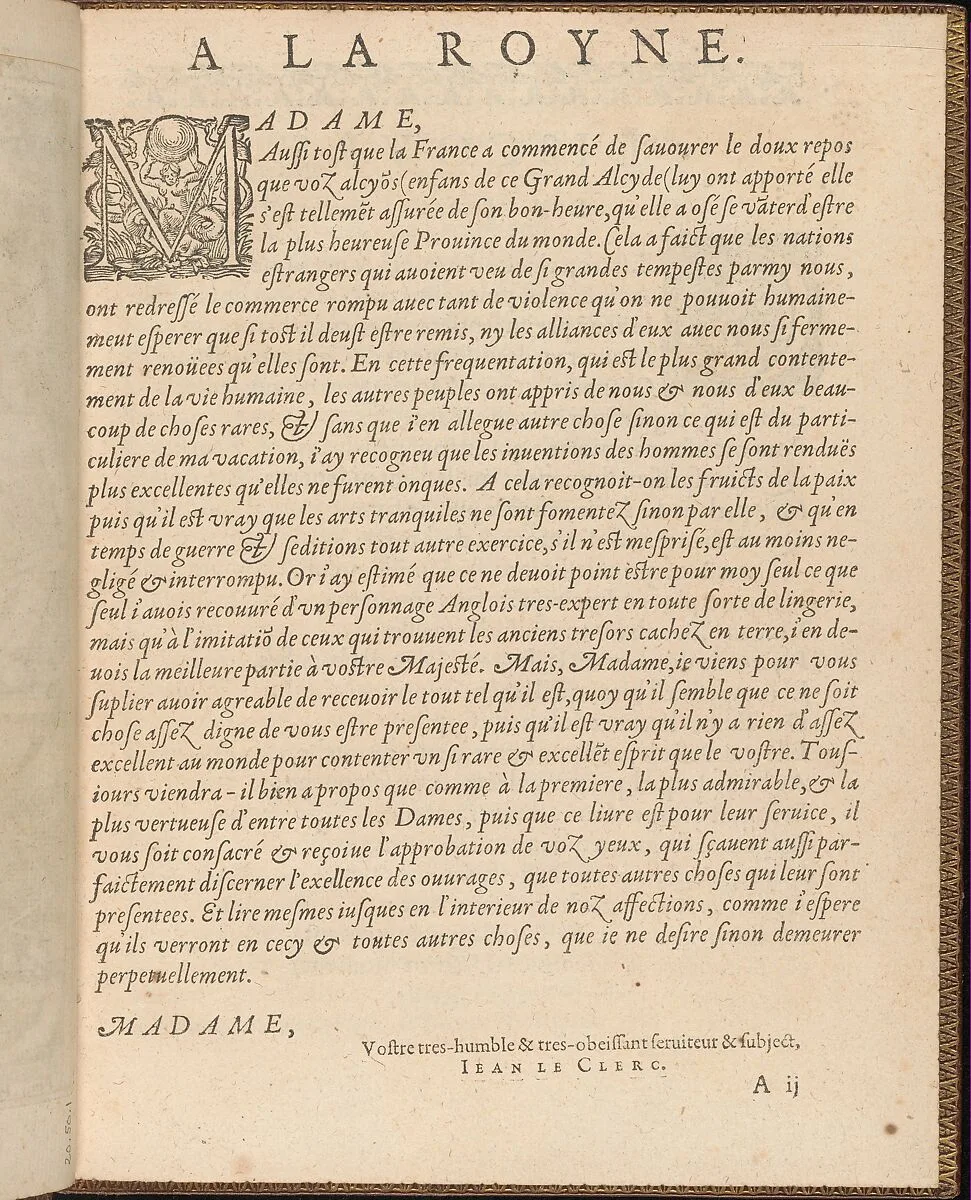 A LA ROYNE.
MADAME,
Auſſi toſt que la France a commencé de ſauourer le doux repos
que voz alcyõs (enfans de ce Grand Alcyde(luy ont apporté elle
s'eſt tellemẽt aſſurée de ſon bon-heure, qu'elle a oſé ſe vãter d'eſtre
la plus heureuſe Prouince du monde. Cela a faict que les nations
eſtrangers qui auoient veu de ſi grandes tempeſtes parmy nous,
ont redreſſé le commerce rompu auec tant de violence qu'on ne pouuoit humaine-
meut eſperer que ſi toſt il deuſt eſtre remis, ny les alliances d'eux auec nous ſi ferme-
ment renoüees qu'elles ſont. En cette frequentation, qui eſt le plus grand contente-
ment de la vie humaine, les autres peuples ont appris de nous & nous d'eux beau-
coup de choſes rares, & ſans que i'en allegue autre choſe ſinon ce qui eſt du parti-
culiere de ma vacation, i'ay recogneu que les inuentions des hommes ſe ſont renduës
plus excellentes qu'elles ne furent ònques. A cela recognoit-on les fruicts de la paix
puis qu'il eſt vray que les arts tranquiles ne ſont fomentez ſinon par elle, & qu'en
temps de guerre & ſeditions tout autre exercice, s'il n'eſt meſpriſé, eſt au moins ne-
gligé & interrompu. Or i'ay eſtimé que ce ne deuoit point èſtre pour moy ſeul ce que
ſeul i'auois recouuré d'vn perſonnage Anglois tres-expert en toute ſorte de lingerie,
mais qu'à l'imitatiõ de ceux qui trouuent les anciens treſors cachez en terre, i'en de-
uois la meilleure partie à voſtre Majeſté. Mais, Madame, ie viens pour vous
ſuplier auoir agreable de receuoir le tout tel qu'il eſt, quoy qu'il ſemble que ce ne ſoit
choſe aſſez digne de vous eſtre preſentee, puis qu'il eſt vray qu'il n'y a rien d'aſſez
excellent au monde pour contenter vn ſi rare & excellẽt eſprit que le voſtre. Touſ-
iours viendra-il bien a propos que comme à la premiere, la plus admirable, & la
plus vertueuſe d'entre toutes les Dames, puis que ce liure eſt pour leur ſeruice, il
vous ſoit conſacré & reçoiue l'approbation de voz yeux, qui ſçauent auſſi par-
faictement diſcerner l'exellence des ouurages, que toutes autres choſes qui leur ſont
preſentees. Et lire meſmes iuſques en l'interieur de noz affections, comme i'eſpere
qu'ils verront en cecy & toutes autres choſes, que ie ne deſire ſinon demeurer
perpetuellement.
MADAME,
Voſtre tres-humble & tres-obeiſſant ſeruiteur & ſubject,
IEAN LE CLERC.
A ij
20.50.1